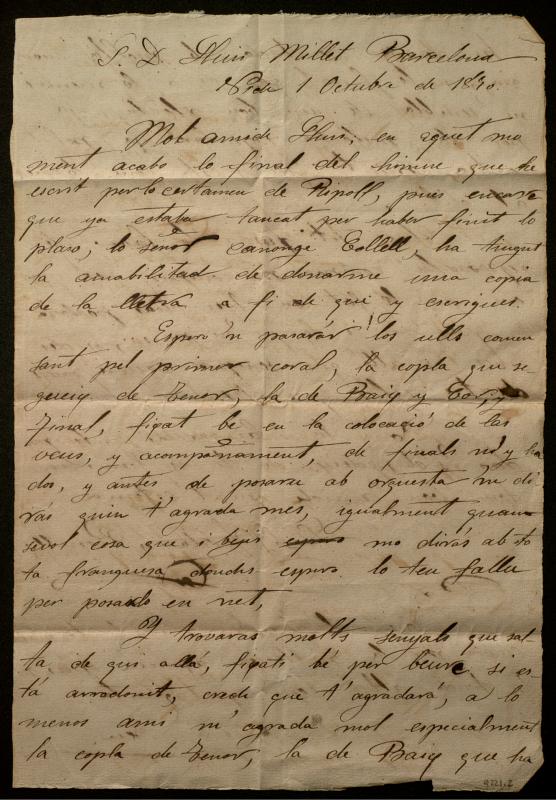 S. D. Lluis Millet Barcelona
1 Octubre de 1890.
Mol amich Lluis; en aquet mo
ment acabo lo final del himne que he
escrit per lo certamen de Ripoll, puis encare
que ya estaba tancat per haber finit lo
plaso; lo señor canonge Collell, ha tingut
la amabilitad de donarme una copia
de la lletra a fi de que y escrigues.
Espero 'm pasarár los ulls comen
sant pel primer coral, la copla que se
gueig de Tenor, la de Baig y Cor, y
Final, fixat be en la colocació de las
veus, y acompañament, de finals n'y ha
dos, y antes de posaru ab orquesta 'm di
rás quin t'agrada mes, igualment quan
sevol cosa que i bejis espero mo dirás ab to
ta franquesa donchs espero lo teu fallu
per posarlo en net,
Y trovaras molts senyals que sal
ta de qui allá, fixati bé per beure si es
tá arrodonit, crech que t'agradará, a lo
menos ami m'agrada mol especialment
la copla de Tenor, la de Baig que ha
4221.2